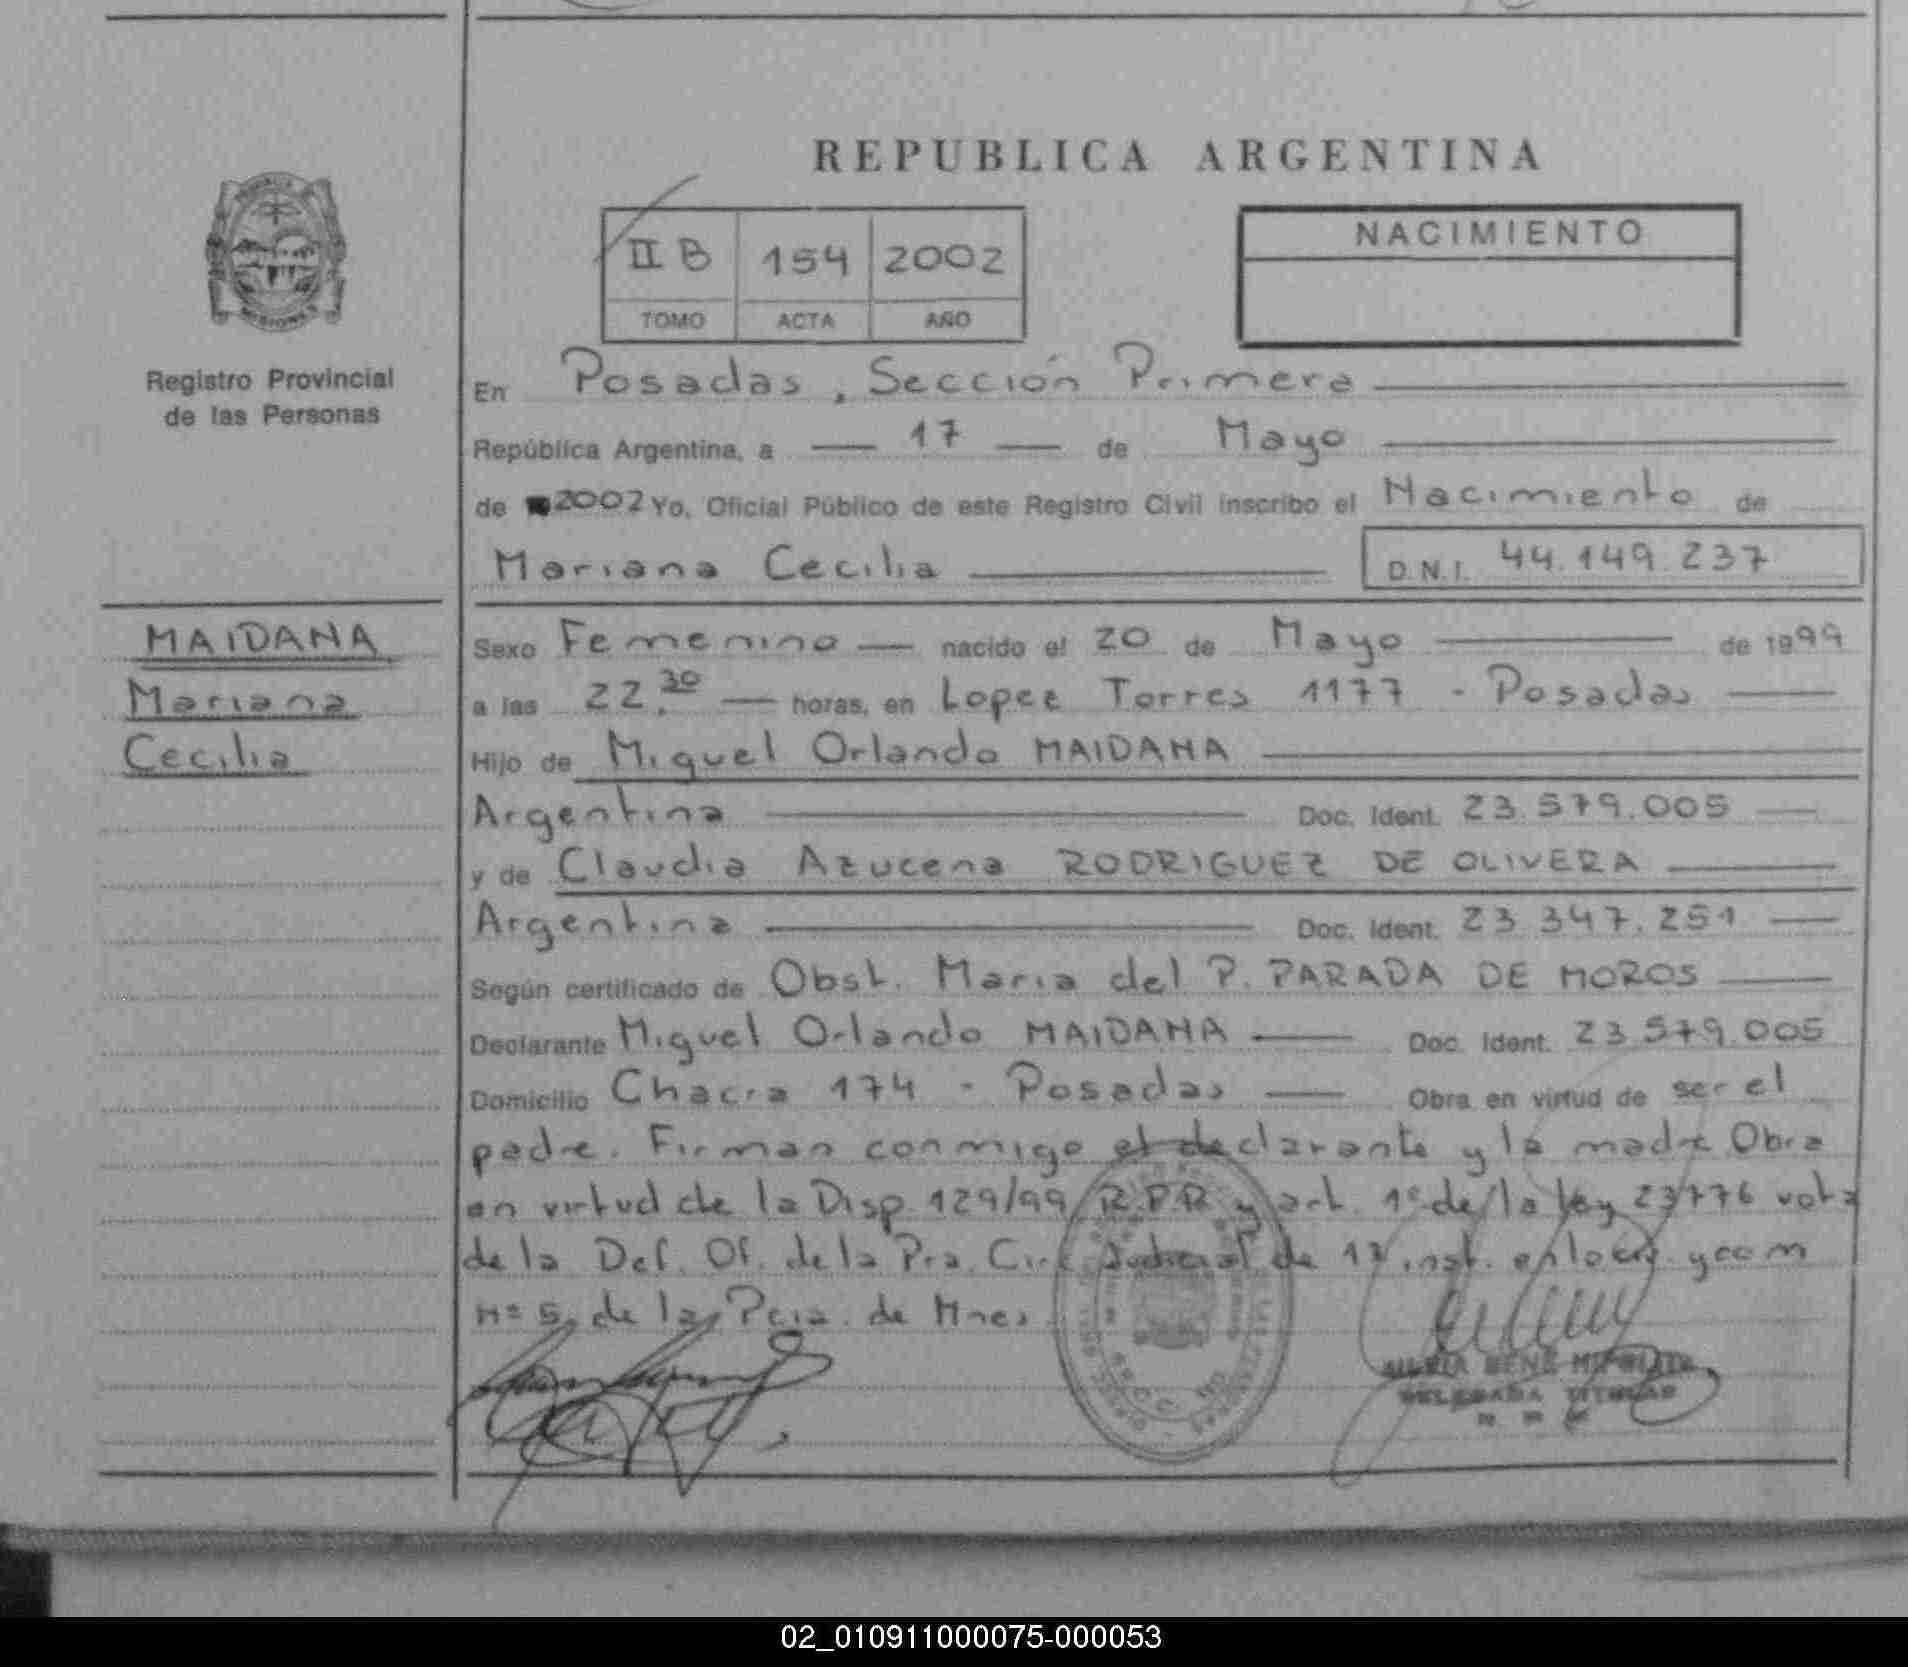 REPUBLICA ARGENTINA
II B 154 2002
TOMO ACTA AÑO
NACIMIENTO
MISIONES
Registro Provincial
de las Personas
En Posadas, Sección Primera
República Argentina, a 17 de Mayo
de 2002 Yo, Oficial Público de este Registro Civil inscribo el Nacimiento de
Mariana Cecilia D.N.I. 44.149.237
MAIDANA
Mariana
Cecilia
Sexo Femenino nacido el 20 de Mayo de 1999
a las 22.30 horas, en Lopez Torres 1177 - Posadas
Hijo de Miguel Orlando MAIDANA
Argentina Doc. Ident. 23.579.005
y de Claudia Azucena RODRIGUEZ DE OLIVERA
Argentina Doc. Ident. 23 347.251
Según certificado de Obst. Maria del P. PARADA DE MOROS
Declarante Miguel Orlando MAIDANA Doc. Ident. 23.579.005
Domicilio Chacra 174 - Posadas Obra en virtud de ser el
padre. Firman conmigo el declarante y la madre Obra
en virtud de la Disp. 129/99 R.P.P. y art. 1º de la ley 23776 vota
de la Def. Of. de la Pra. Circ. Judicial de 1ª inst. en lo civ. y com
nº 5 de la Pcia. de Mnes.
DELEGADA TITULAR
02_010911000075-000053